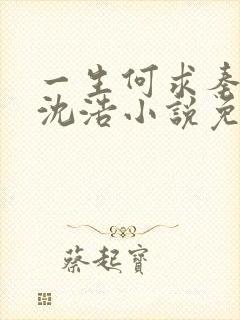 一生何求秦
沈浩小說免
蔡起寶